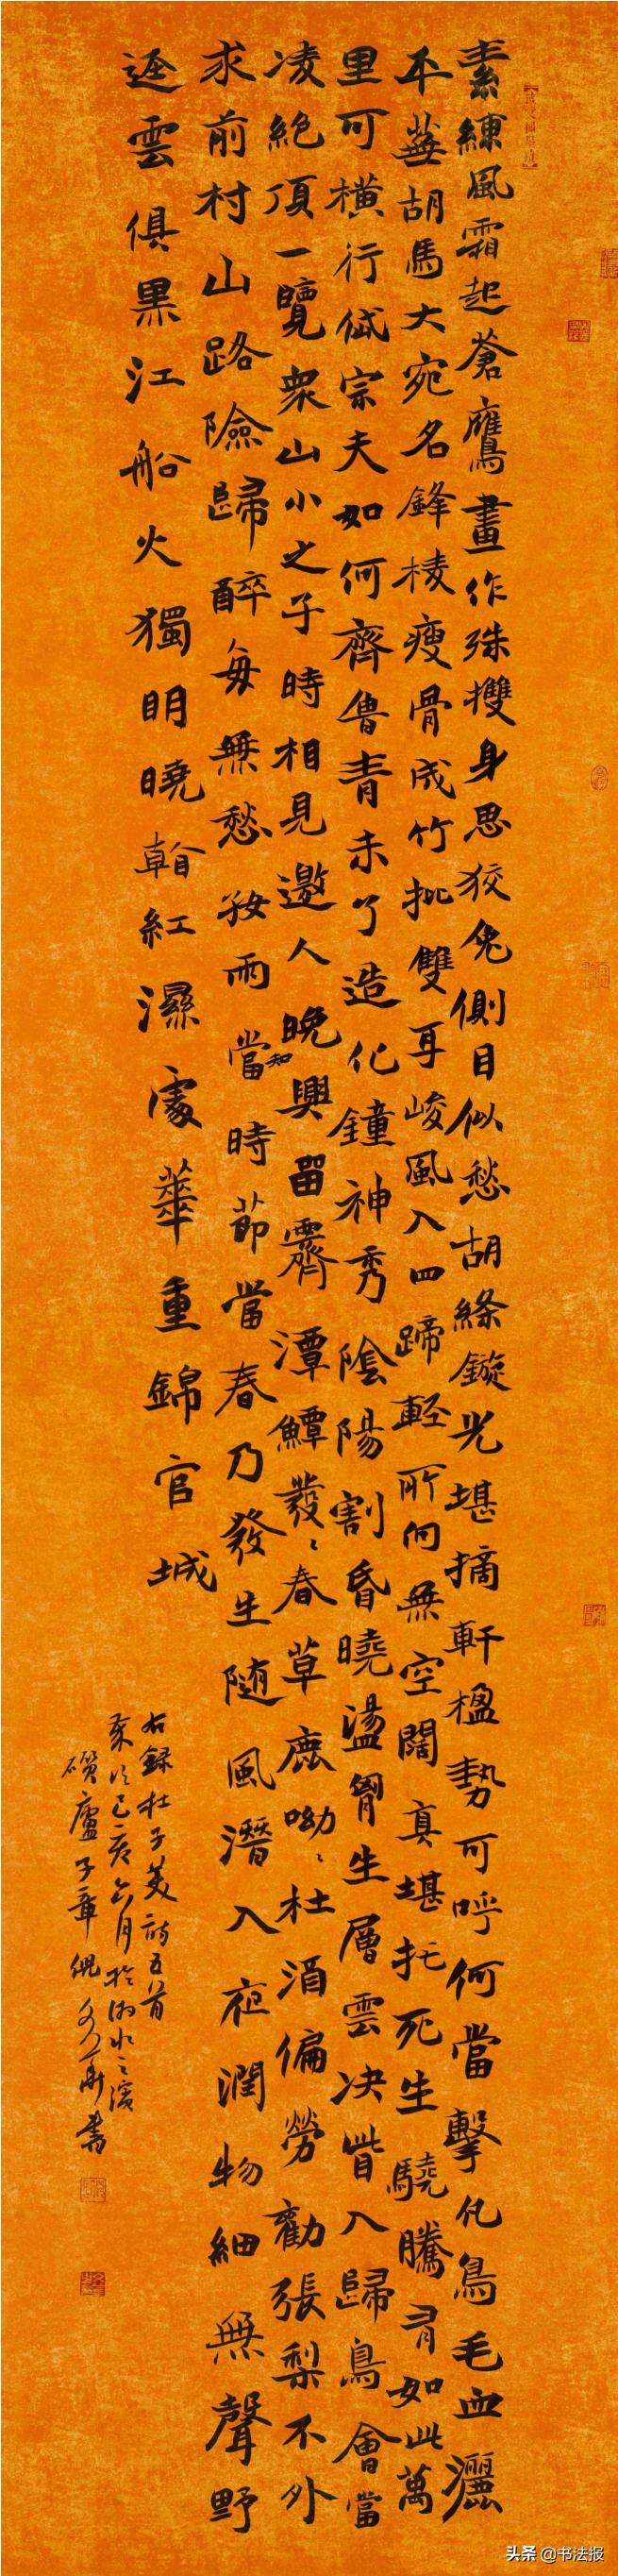 素練風霜起蒼鷹畫作殊㩳身思狡兔側目似愁胡絛鏇光堪摘軒楹勢可呼何當擊凡鳥毛血灑
平蕪胡馬大宛名鋒棱瘦骨成竹批雙耳峻風入四蹄輕所向無空闊真堪托死生驍騰有如此萬
里可橫行岱宗夫如何齊魯青未了造化鐘神秀陰陽割昏曉盪胷生層雲决眥入歸鳥會當
凌絕頂一覽衆山小之子時相見邀人晚興留霽潭鱣發〻春草鹿呦〻杜酒偏勞勸張梨不外
求前村山路險歸醉每無愁好雨當知時節當春乃發生隨風潛入夜潤物細無聲野
逕雲俱黑江船火獨明曉看紅濕處華重錦官城
右錄杜子美詩五首
歲次己亥六月於湖水之濱
礩廬子章倪書
头条 @书法报